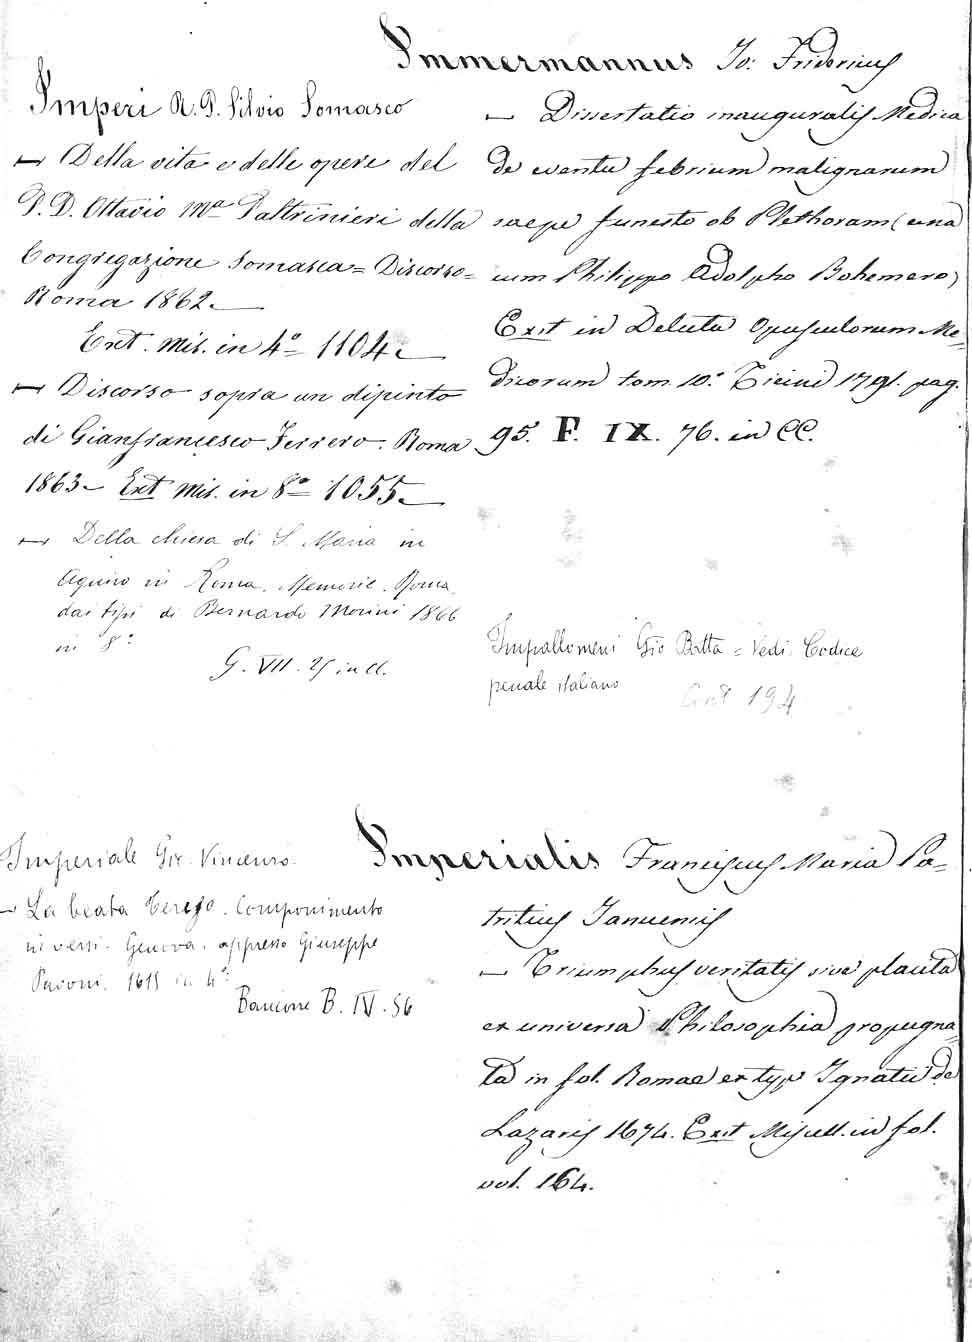 Immermannus Jo: Fridericus
— Dissertatio inauguralis Medica
de eventu febrium malignarum
saepe funesto ob Plethoram (una
cum Philippo Adolpho Bohemero)
Exit in Delectu Opusculorum Me=
dicorum tom. 10.° Ticini 1791. pag.
95. F. IX. 76. in CC.
Imperi R. P. Silvio Somasco
— Della vita e delle opere del
P. D. Ottavio Mª Paltrinieri della
Congregazione Somasca = Discorso =
Roma 1862. —
Ext. Mis. in 4° 1104. —
— Discorso sopra un dipinto
di Gianfrancesco Ferrero. Roma
1863 — Ext Mis. in 8° 1055. —
— Della chiesa di S. Maria in
Aquiro in Roma. Memorie. Roma
dai tipi di Bernardo Morini 1866
in 8°
G. VII. 25 in cl.
Impallomeni Gio Batta = Vedi. Codice
penale italiano
194
Imperiale Gio. Vincenzo.
— La beata Teresa. Componimento
in versi. Genova. appresso Giuseppe
Pavoni. 1615 in 4°:
Bancone B. IV. 56
Imperialis Franciscus Maria Pa=
tritius Januensis
— Triumphus veritatis sive placita
ex universa Philosophia propugna=
ta in fol. Romae ex typ. Ignatii de
Lazaris 1674. Exit Miscell. in fol.
vol. 164.